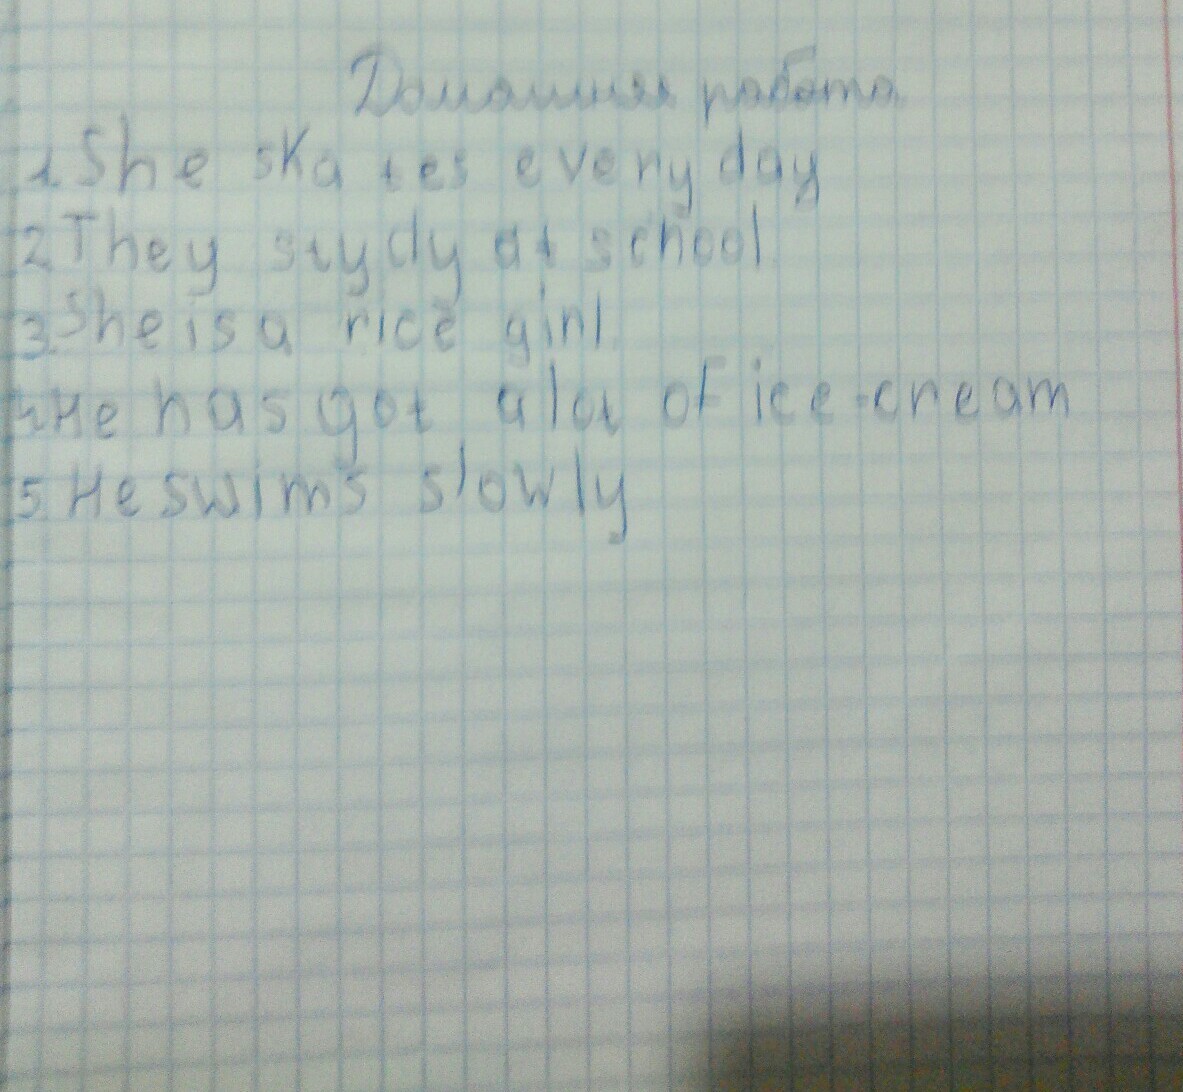 Домашняя работа
1. She skates every day
2. They stydy at school.
3. She is a rice girl.
4. He has got a lot of ice-cream
5. He swims slowly